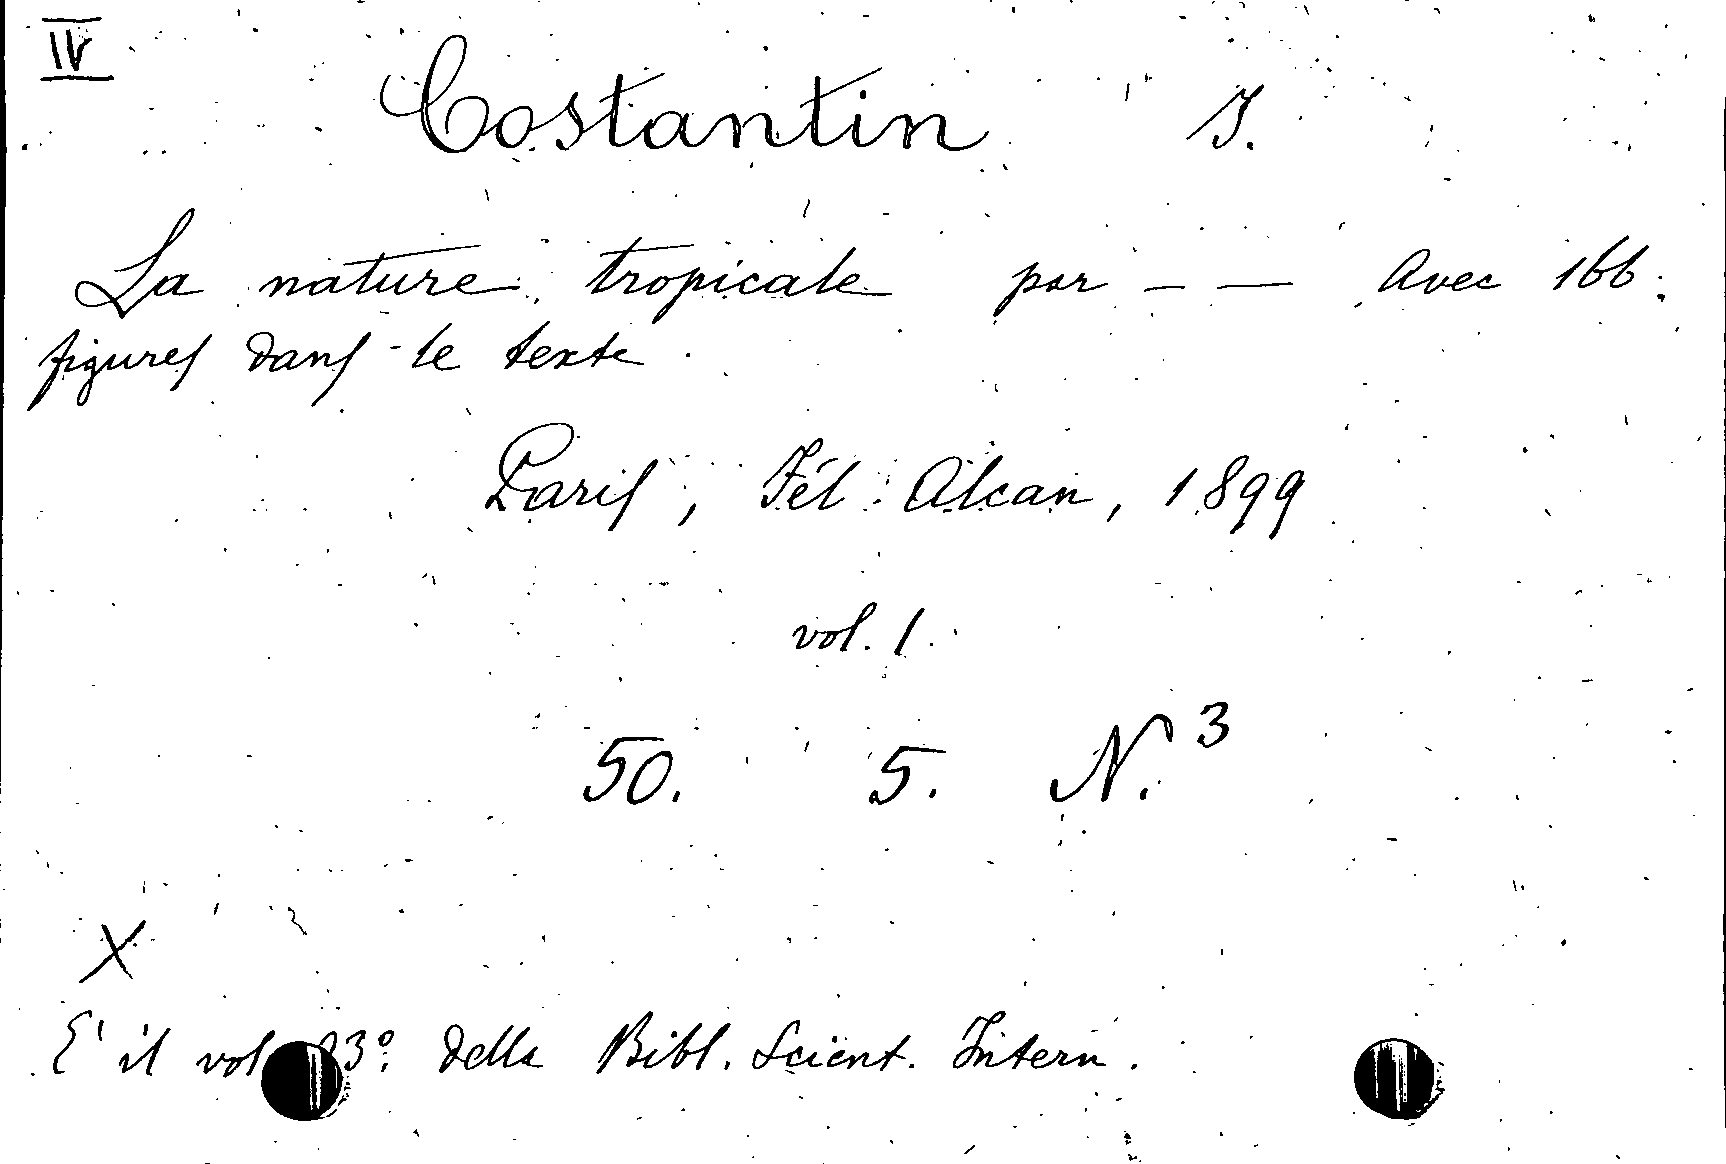 IV
Costantin J.
La nature tropicale par — — Avec 166
figures dans le texte.
Paris, Fél. Alcan, 1899
vol. 1.
50. 5. N. 3
X
E' il vol. 3º della Bibl. Scient. Intern.